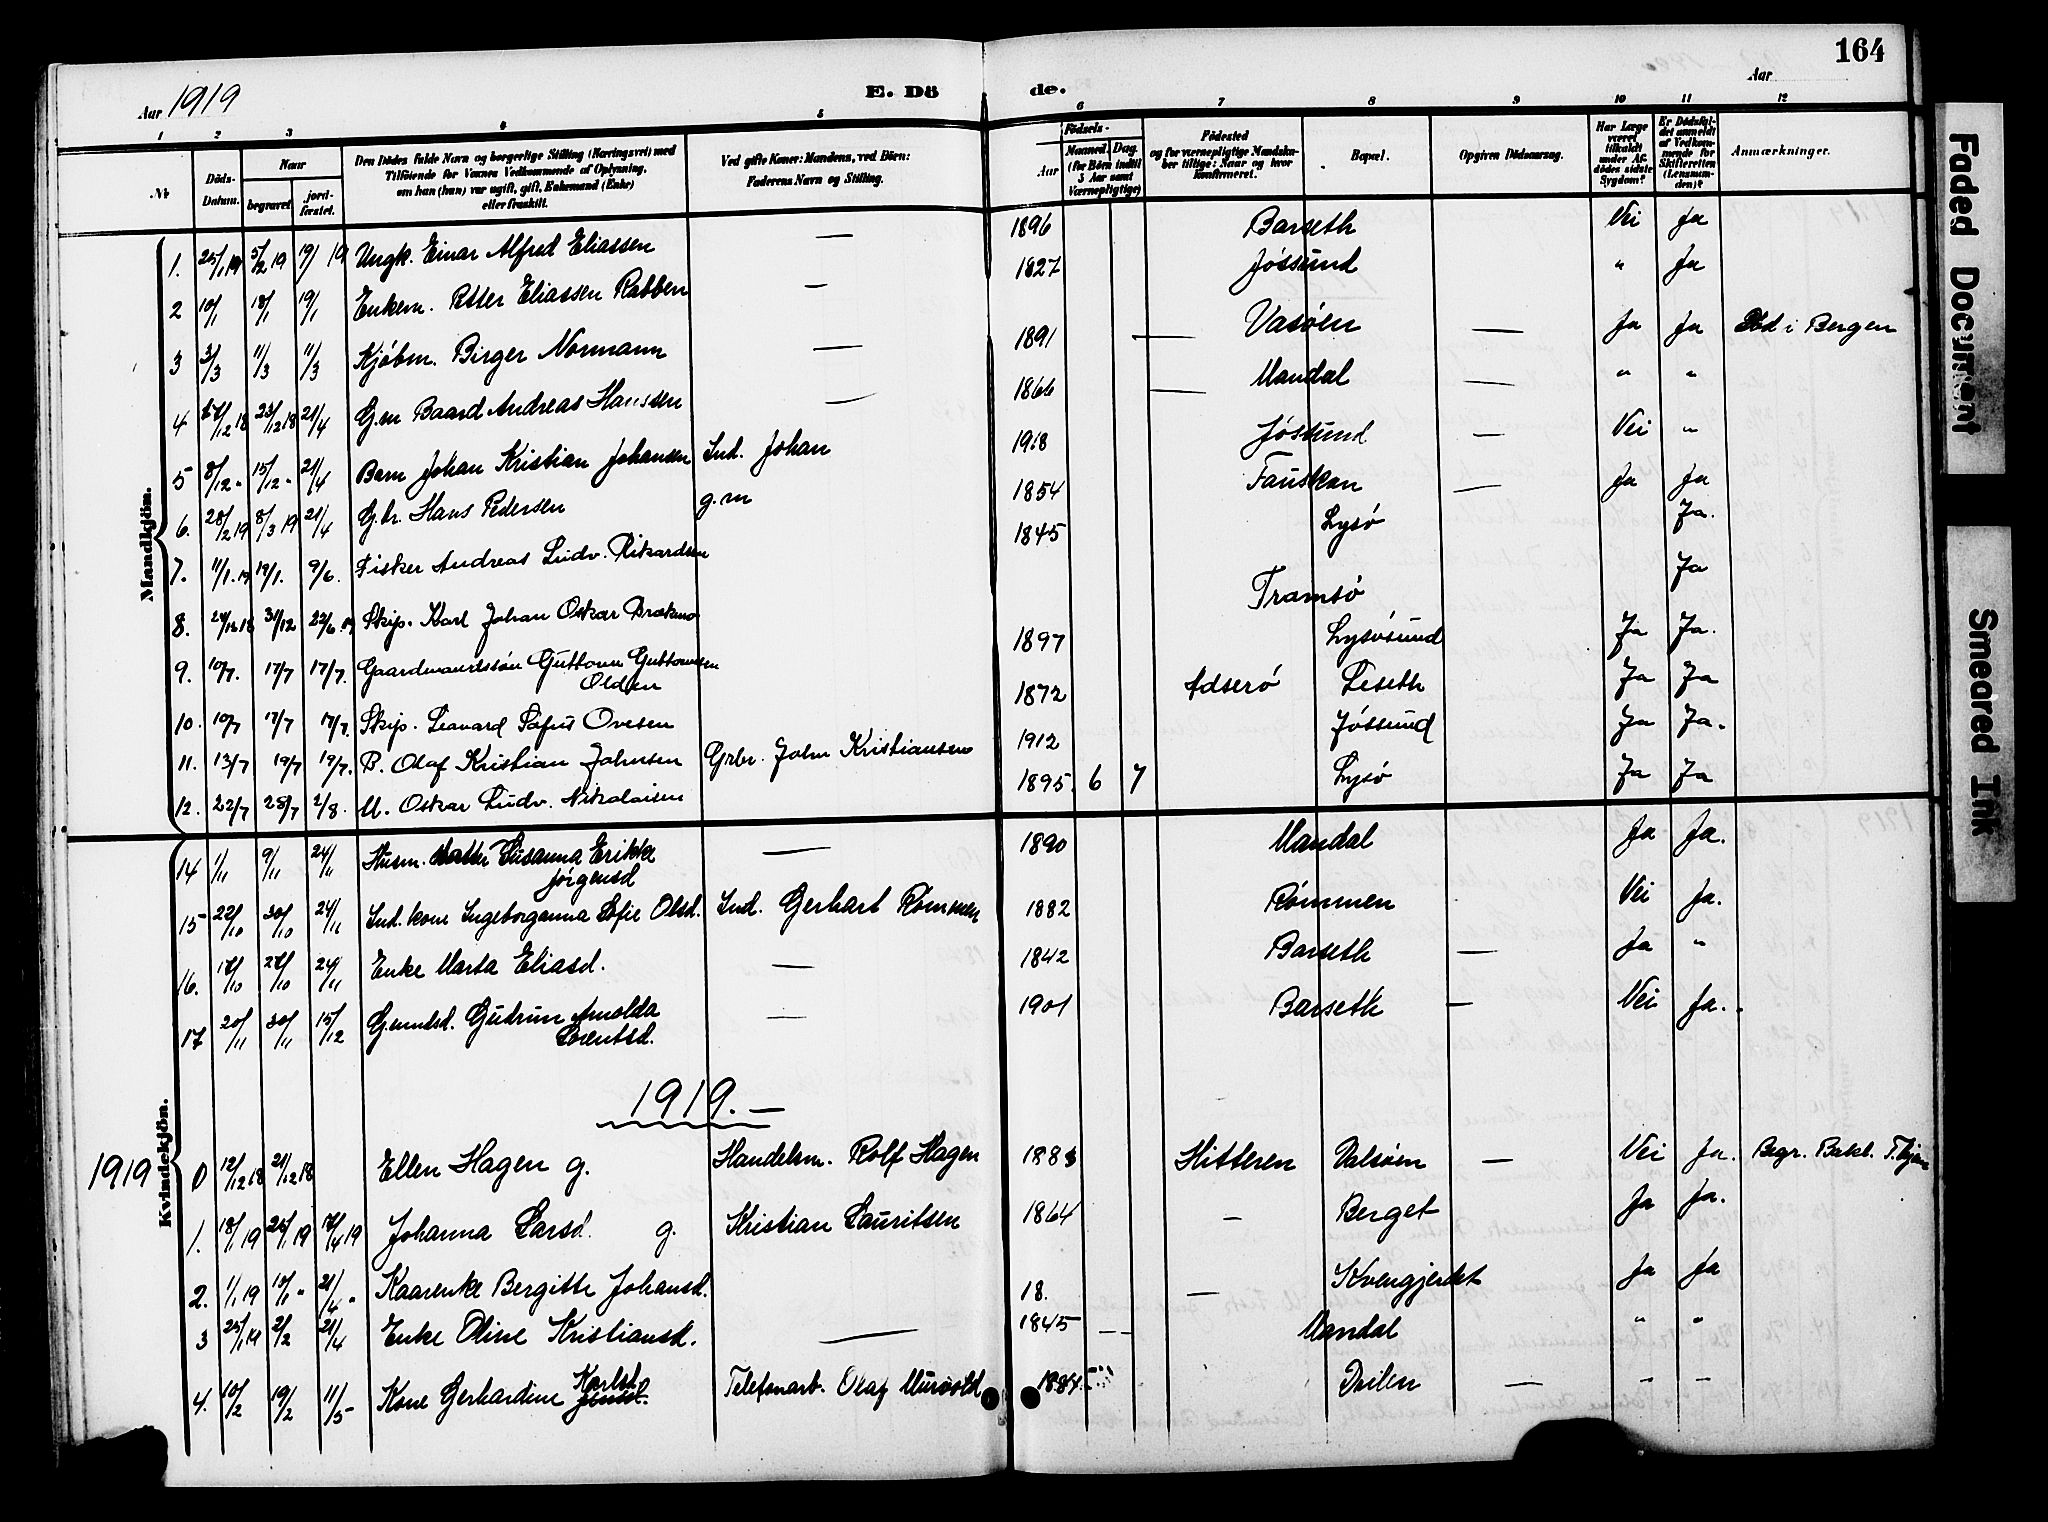 164
Aar 1919 E. Dö de. Aar
1 2 3 4 5 6 7 8 9 10 11 12
No. Döds-Datum. Naar begravet jordfæstet. Den Dödes fulde Navn og borgerlige Stilling (Næringsvei) med Tilföiende for Voxnes Vedkommende af Oplysning, om han (hun) var ugift, gift, Enkemand (Enke) eller fraskilt. Ved gifte Koner: Mandens, ved Börn: Faderens Navn og Stilling. Födsels- Aar Maaned. Dag. (for Börn indtil 3 Aar samt Værnepligtige) Födested og for værnepligtige Mandskaber tillige: Naar og hvor konfirmeret. Bopæl. Opgiven Dödsaarsag. Har Læge været tilkaldt under Afdödes sidste Sygdom? Er Dödsfaldet anmeldt af Vedkommende for Skifteretten (Lensmanden)? Anmærkninger.
Mandkjön.
1. 25/1 19 5/2 19 19/ 19 Ungk. Einar Alfred Eliassen — 1896 Barseth Nei Ja
2 10/1 18/1 19/1 Enkem. Petter Eliassen Rabben — 1827 Jøssund " Ja
3 3/3 11/3 11/3 Kjøbm. Birger Normann — 1891 — Vasøen — Ja Ja Død i Bergen
4 /12 18 23/12 18 21/4 G.m Baard Andreas Hanssen — 1866 — Mandal — " "
5 8/12 " 15/12 " 21/4 Barn Johan Kristian Johansen Ind. Johan 1918 Jøssund — Nei "
6. 28/2 19 8/3 19 21/4 G.br. Hans Pedersen g.m 1854 Fauskan — Ja Ja
7. 11/1. 19 19/1. 9/6. Fisker Andreas Ludv. Rikardsen 1845 Lysø Ja.
8. 24/12 18 31/12 22/6. 19 Skip. Karl Johan Oskar Tromsø Ja
9. 10/7. 17/7 17/7. Gaardmandssøn Guttorm Guttormsen 1897 Lysøsund Ja Ja.
Olden
10. 10/7 17/7 17/7. Skip. Leonard Sofus Ovesen 1872 Leseth Ja Ja
11. 13/7 19/7 19/7. B. Olaf Kristian Johnsen Grbr. John Kristiansen 1912 Jøssund Ja Ja.
12. 22/7 28/7 2/8. U. Oskar Ludv. Nikolaisen 1895. 6 7 Lysø Ja Ja
Kvindekjön.
14 1/11 9/11 24/11 Husm. datter Susanna Erikka — 1890 Mandal Ja Ja.
Jørgensd
15 22/10 30/10 24/11 Ind. kone Ingeborganna Sofie Olsd. Ind. Gerhart Rømmen 1882 Rømmen Nei Ja.
16. 17/10 27/10 24/11 Enke Marta Eliasd. — 1842 Barseth — Ja "
17 20/11 30/11 15/12 Gmndsd. Gudrun Arnolda — 1901 Barseth — Nei Ja.
Lorentsd.
1919. —
1919 0 12/12 18 21/12 18 Ellen Hagen g. Handelsm. Rolf Hagen 1883 Hitteren Valsøen — Nei Ja. Begr. Bakl. T.hjem
1. 18/1 19 25/1 19 17/4 19 Johanna Larsd. g. Kristian Lauritsen 1864 — Berget Ja Ja.
2. 1/1 19 10/1 " 21/4 " Kaarenke Bergitte Johansd. 18. — Kvengjerdet Ja Ja
3 25/1 19 2/2 21/4 Enke Oline Kristiansd. — 1845 — Mandal " "
4. 10/2 19/2 11/5 Kone Gerhardine Karlsd. Telefonarb. Olaf Murvold 1884 — " –
Faded Document
Smeared Ink